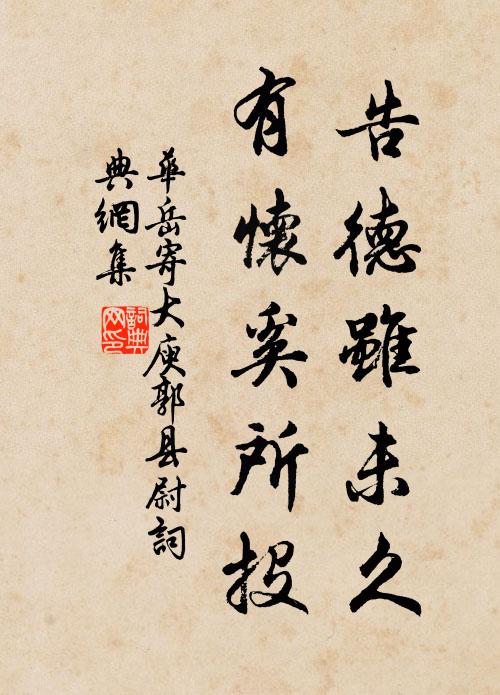 告德雖未久
有懷奚所投
華岳寄大庾郭县尉詞
典網集
詞典网印